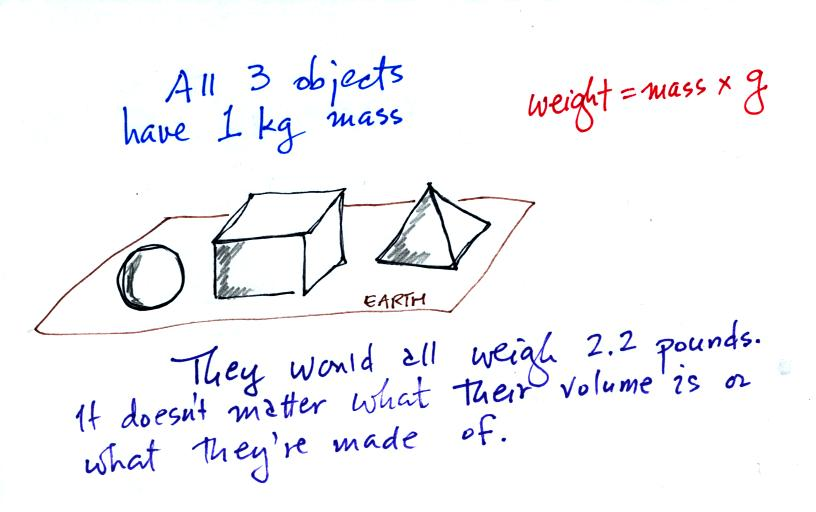 All 3 objects
have 1 kg mass
weight = mass x g
EARTH
They would all weigh 2.2 pounds.
It doesn't matter what their volume is or
what they're made of.